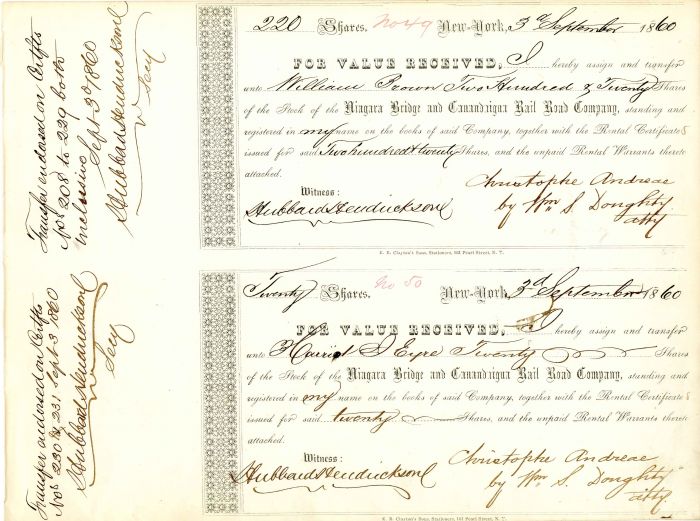 220 Shares. No 49 New-York, 3d September 1860
FOR VALUE RECEIVED, I hereby assign and transfer
unto William Brown Two Hundred & Twenty Shares
of the Stock of the Niagara Bridge and Canandaigua Rail Road Company, standing and
registered in my name on the books of said Company, together with the Rental Certificate
issued for said Two hundred & twenty Shares, and the unpaid Rental Warrants thereto
attached.
Witness:
Hubbard Hendrickson
Christophe Andreae
by Wm S. Doughty
atty
E. B. Clayton's Sons, Stationers, 161 Pearl Street, N. Y.
Transfer endorsed on Certfts
Nos 208 to 229 both
inclusive Sept 3d 1860
Hubbard Hendrickson
Secy
Twenty Shares. No 50 New-York, 3d September 1860
FOR VALUE RECEIVED, I hereby assign and transfer
unto Harriet S Eyre Twenty Shares
of the Stock of the Niagara Bridge and Canandaigua Rail Road Company, standing and
registered in my name on the books of said Company, together with the Rental Certificate
issued for said twenty Shares, and the unpaid Rental Warrants thereto
attached.
Witness:
Hubbard Hendrickson
Christophe Andreae
by Wm S. Doughty
atty
E. B. Clayton's Sons, Stationers, 161 Pearl Street, N. Y.
Transfer endorsed on Certfts
Nos 230 & 231 Sept 3 1860
Hubbard Hendrickson
Secy